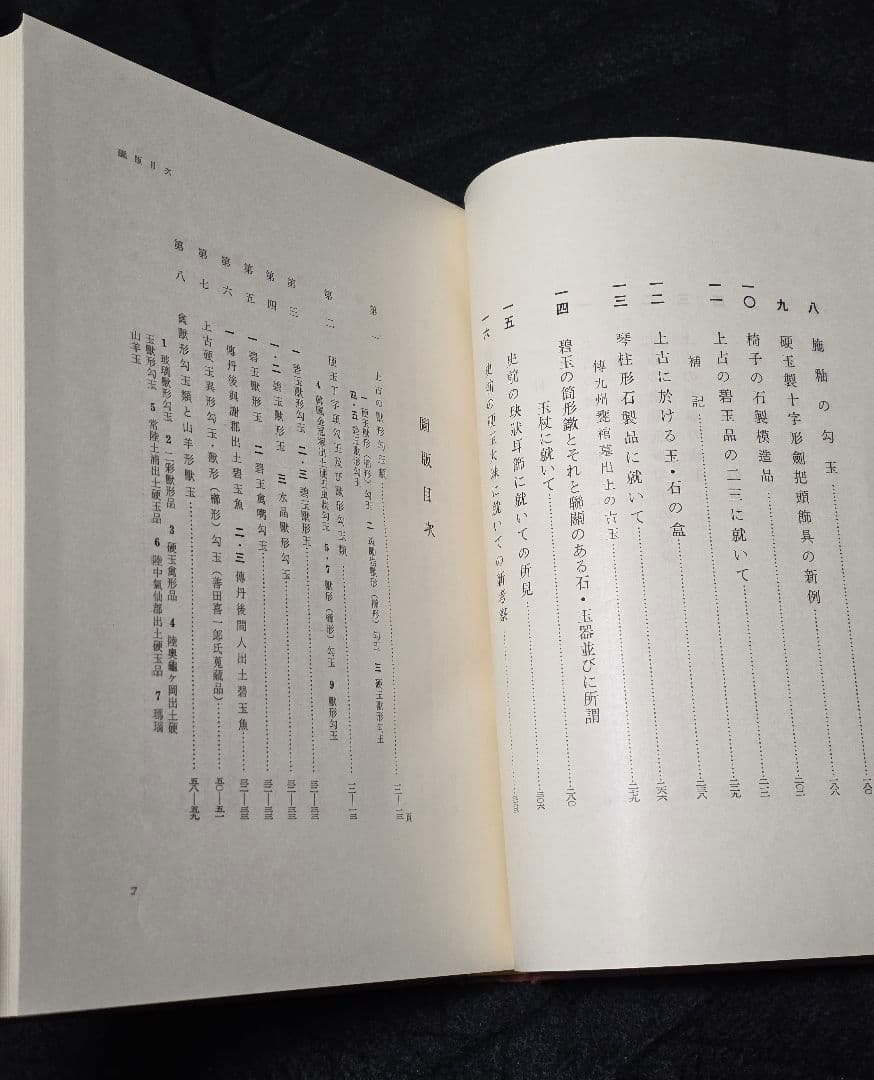 八 施釉の勾玉……一八〇
九 硬玉製十字形劍把頭飾具の新例……一八八
一〇 椅子の石製模造品……二〇二
一一 上古の碧玉品の二三に就いて……二一三
補記……二二九
一二 上古に於ける玉・石の盒……二三六
一三 琴柱形石製品に就いて……二六六
傳九州甕棺墓出土の古玉……二七九
一四 碧玉の筒形鏃とそれと聯關のある石・玉器並びに所謂
玉杖に就いて……二八〇
一五 史前の玦狀耳飾に就いての所見……三〇六
一六 史前の硬玉大珠に就いての新考察
圖版目次
頁
第一 上古の獸形勾玉類……一二―一三
第二 硬玉丁字頭勾玉及び獸形勾玉類……一二―一三
5・7 獸形(櫛形)勾玉 9 獸形勾玉
第三 1 碧玉獸形勾玉 2・3 碧玉獸形玉……三二―三三
第四 1・2 碧玉獸形玉 三 水晶獸形勾玉……三二―三三
第五 1 碧玉獸形玉 2 碧玉禽嘴勾玉……三二―三三
第六 1 傳丹後與謝郡出土碧玉魚 2・3 傳丹後間人出土碧玉魚……三二―三三
第七 上古硬玉異形勾玉・獸形(櫛形)勾玉(善田喜一郎氏蒐藏品)……五〇―五一
第八 禽獸形勾玉類と山羊形獸玉……五八―五九
1 玻璃獸形勾玉 2 二彩獸形品 3 硬玉禽形品 4 陸奧龜ヶ岡出土硬
玉獸形勾玉 5 常陸土浦出土硬玉品 6 陸中氣仙郡出土硬玉品 7 瑪瑙
山羊玉
圖版目次
7